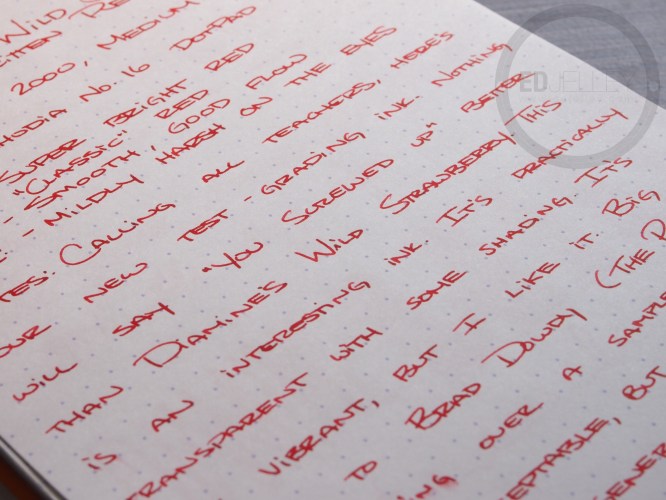 Wild
2000, Medium
No. 16 DotPad
Super Bright Red
- "Classic" Red
- Smooth, Good Flow
- Mildly Harsh on the Eyes
Calling all teachers, here's
our new test-grading ink. Nothing
will say "you screwed up" better
than Diamine's Wild Strawberry. This
is an interesting ink. It's practically
transparent with some shading. It's
vibrant, but I like it. Big
to Brad Dowdy (The
over a
but
ED